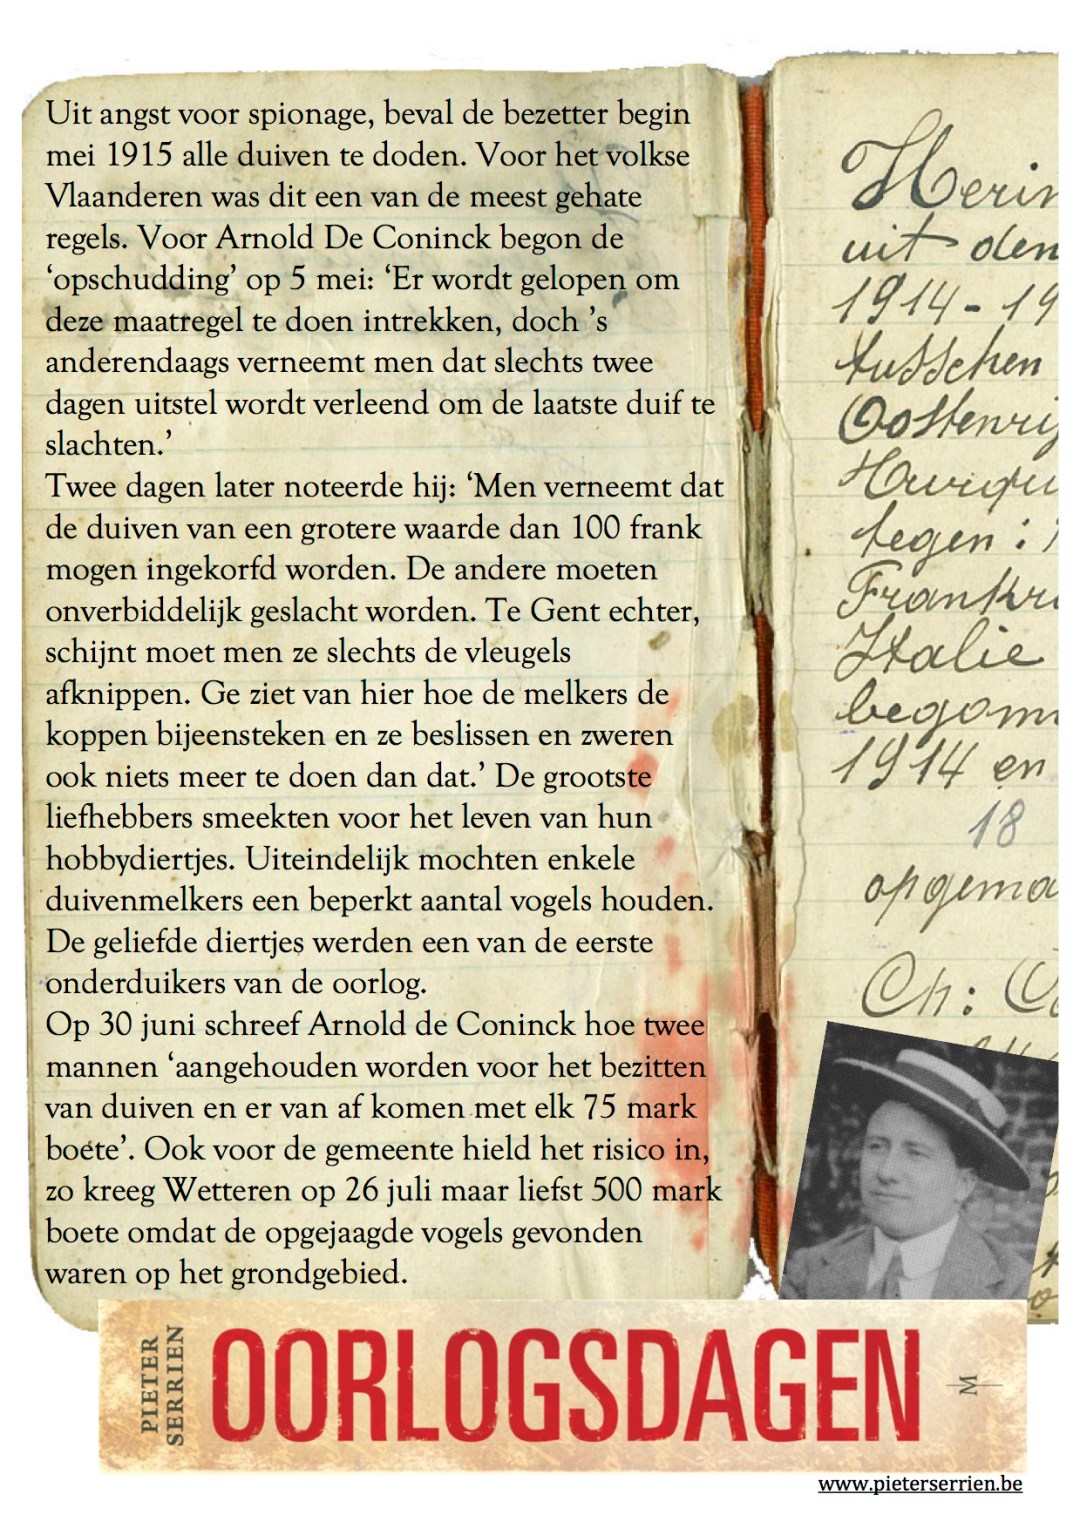 Uit angst voor spionage, beval de bezetter begin
mei 1915 alle duiven te doden. Voor het volkse
Vlaanderen was dit een van de meest gehate
regels. Voor Arnold De Coninck begon de
‘opschudding’ op 5 mei: ‘Er wordt gelopen om
deze maatregel te doen intrekken, doch ’s
anderendaags verneemt men dat slechts twee
dagen uitstel wordt verleend om de laatste duif te
slachten.’
Twee dagen later noteerde hij: ‘Men verneemt dat
de duiven van een grotere waarde dan 100 frank
mogen ingekorfd worden. De andere moeten
onverbiddelijk geslacht worden. Te Gent echter,
schijnt moet men ze slechts de vleugels
afknippen. Ge ziet van hier hoe de melkers de
koppen bijeensteken en ze beslissen en zweren
ook niets meer te doen dan dat.’ De grootste
liefhebbers smeekten voor het leven van hun
hobbydiertjes. Uiteindelijk mochten enkele
duivenmelkers een beperkt aantal vogels houden.
De geliefde diertjes werden een van de eerste
onderduikers van de oorlog.
Op 30 juni schreef Arnold de Coninck hoe twee
mannen ‘aangehouden worden voor het bezitten
van duiven en er van af komen met elk 75 mark
boete’. Ook voor de gemeente hield het risico in,
zo kreeg Wetteren op 26 juli maar liefst 500 mark
boete omdat de opgejaagde vogels gevonden
waren op het grondgebied.
Herin
uit den
1914-19
tusschen
Oostenrij
tegen :
Frankr
Italie
begonn
1914 en
18
opgema
Ch:
PIETER
SERRIEN
OORLOGSDAGEN
M
www.pieterserrien.be